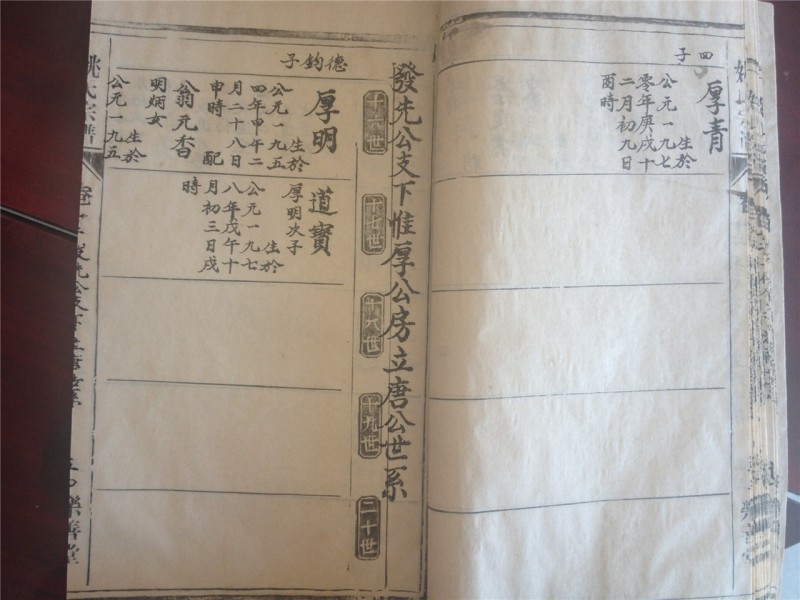 四子
厚青
生於
公元一九七
零年庚戌十
二月初九日
酉時
發先公支下惟厚公房立唐公世系
十六世
十七世
十八世
十九世
二十世
德鈞子
厚明
生於
公元一九五
四年甲午二
月二十八日
申時 配
翁元香
明炳女
生於
公元一九五
道寶
厚明次子
生於
公元一九七
八年戊午十
月初三日戌
時
姚氏宗譜
樂善堂